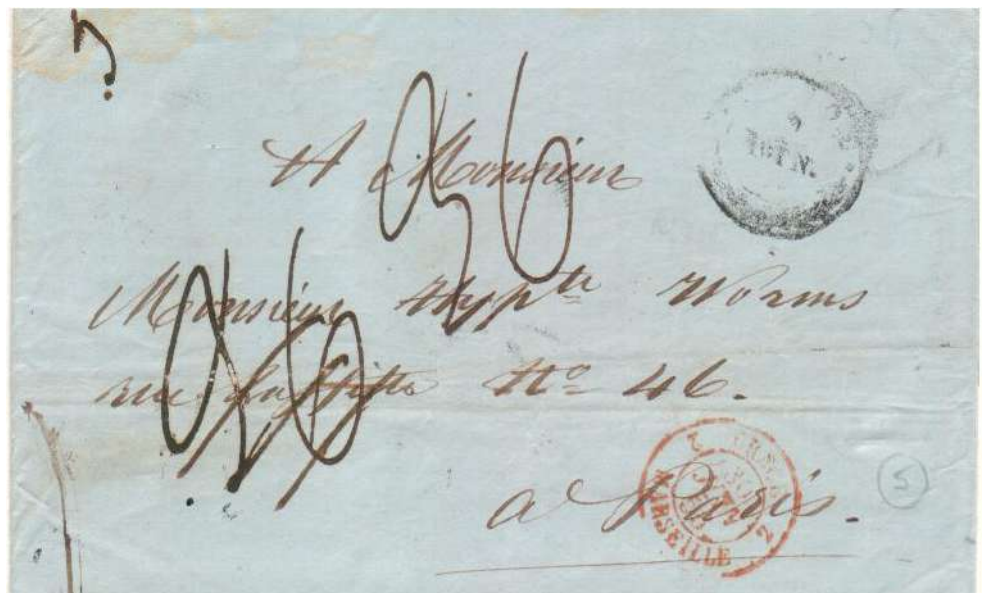 A Monsieur
Monsieur Hypte Worms
rue Laffitte No 46.
a Paris.
MARSEILLE
5